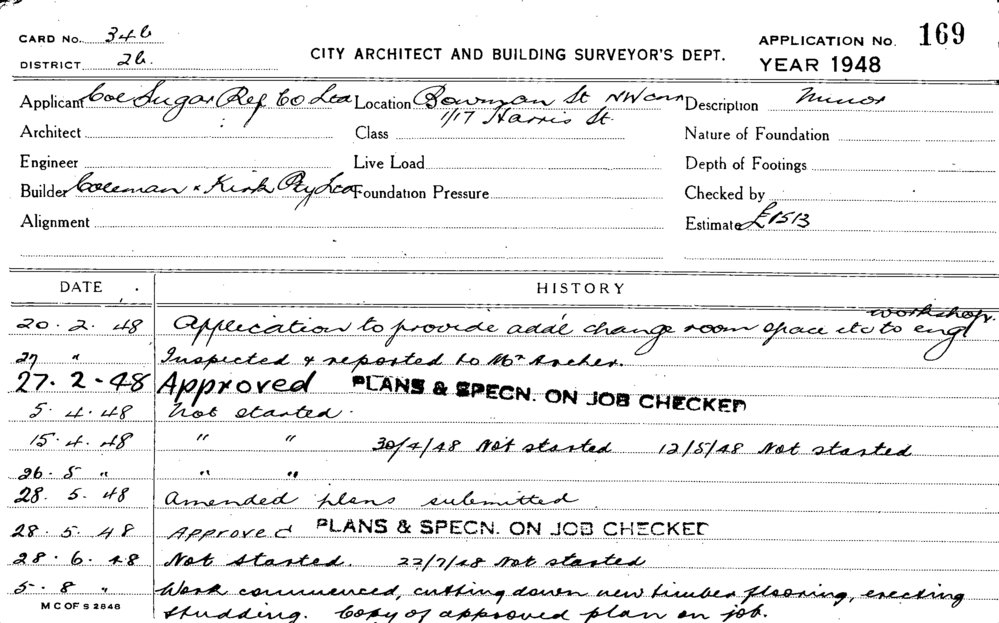 CARD No. 346 APPLICATION No. 169
DISTRICT 26. CITY ARCHITECT AND BUILDING SURVEYOR'S DEPT. YEAR 1948
Applicant Col Sugar Ref Co Ltd Location Bowman St NW corn Description Minor
1/17 Harris St.
Architect Class Nature of Foundation
Engineer Live Load Depth of Footings
Builder Coleman & Kirk Pty Ltd Foundation Pressure Checked by
Alignment Estimate £1513
DATE HISTORY
workshop.
20. 2. 48 Application to provide add'l change room space etc to eng
27 " Inspected & reported to Mr Archer.
27. 2 - 48 Approved PLANS & SPECN. ON JOB CHECKED
5. 4. 48 Not started.
15. 4. 48 " " 30/4/48 Not started 12/5/48 Not started
26. 5 " " "
28. 5. 48 Amended plans submitted
28. 5. 48 Approved PLANS & SPECN. ON JOB CHECKED
28. 6. 48 Not started. 22/7/48 Not started
5. 8 " Work commenced, cutting down new timber flooring, erecting
M C OF S 2848 studding. Copy of approved plan on job.